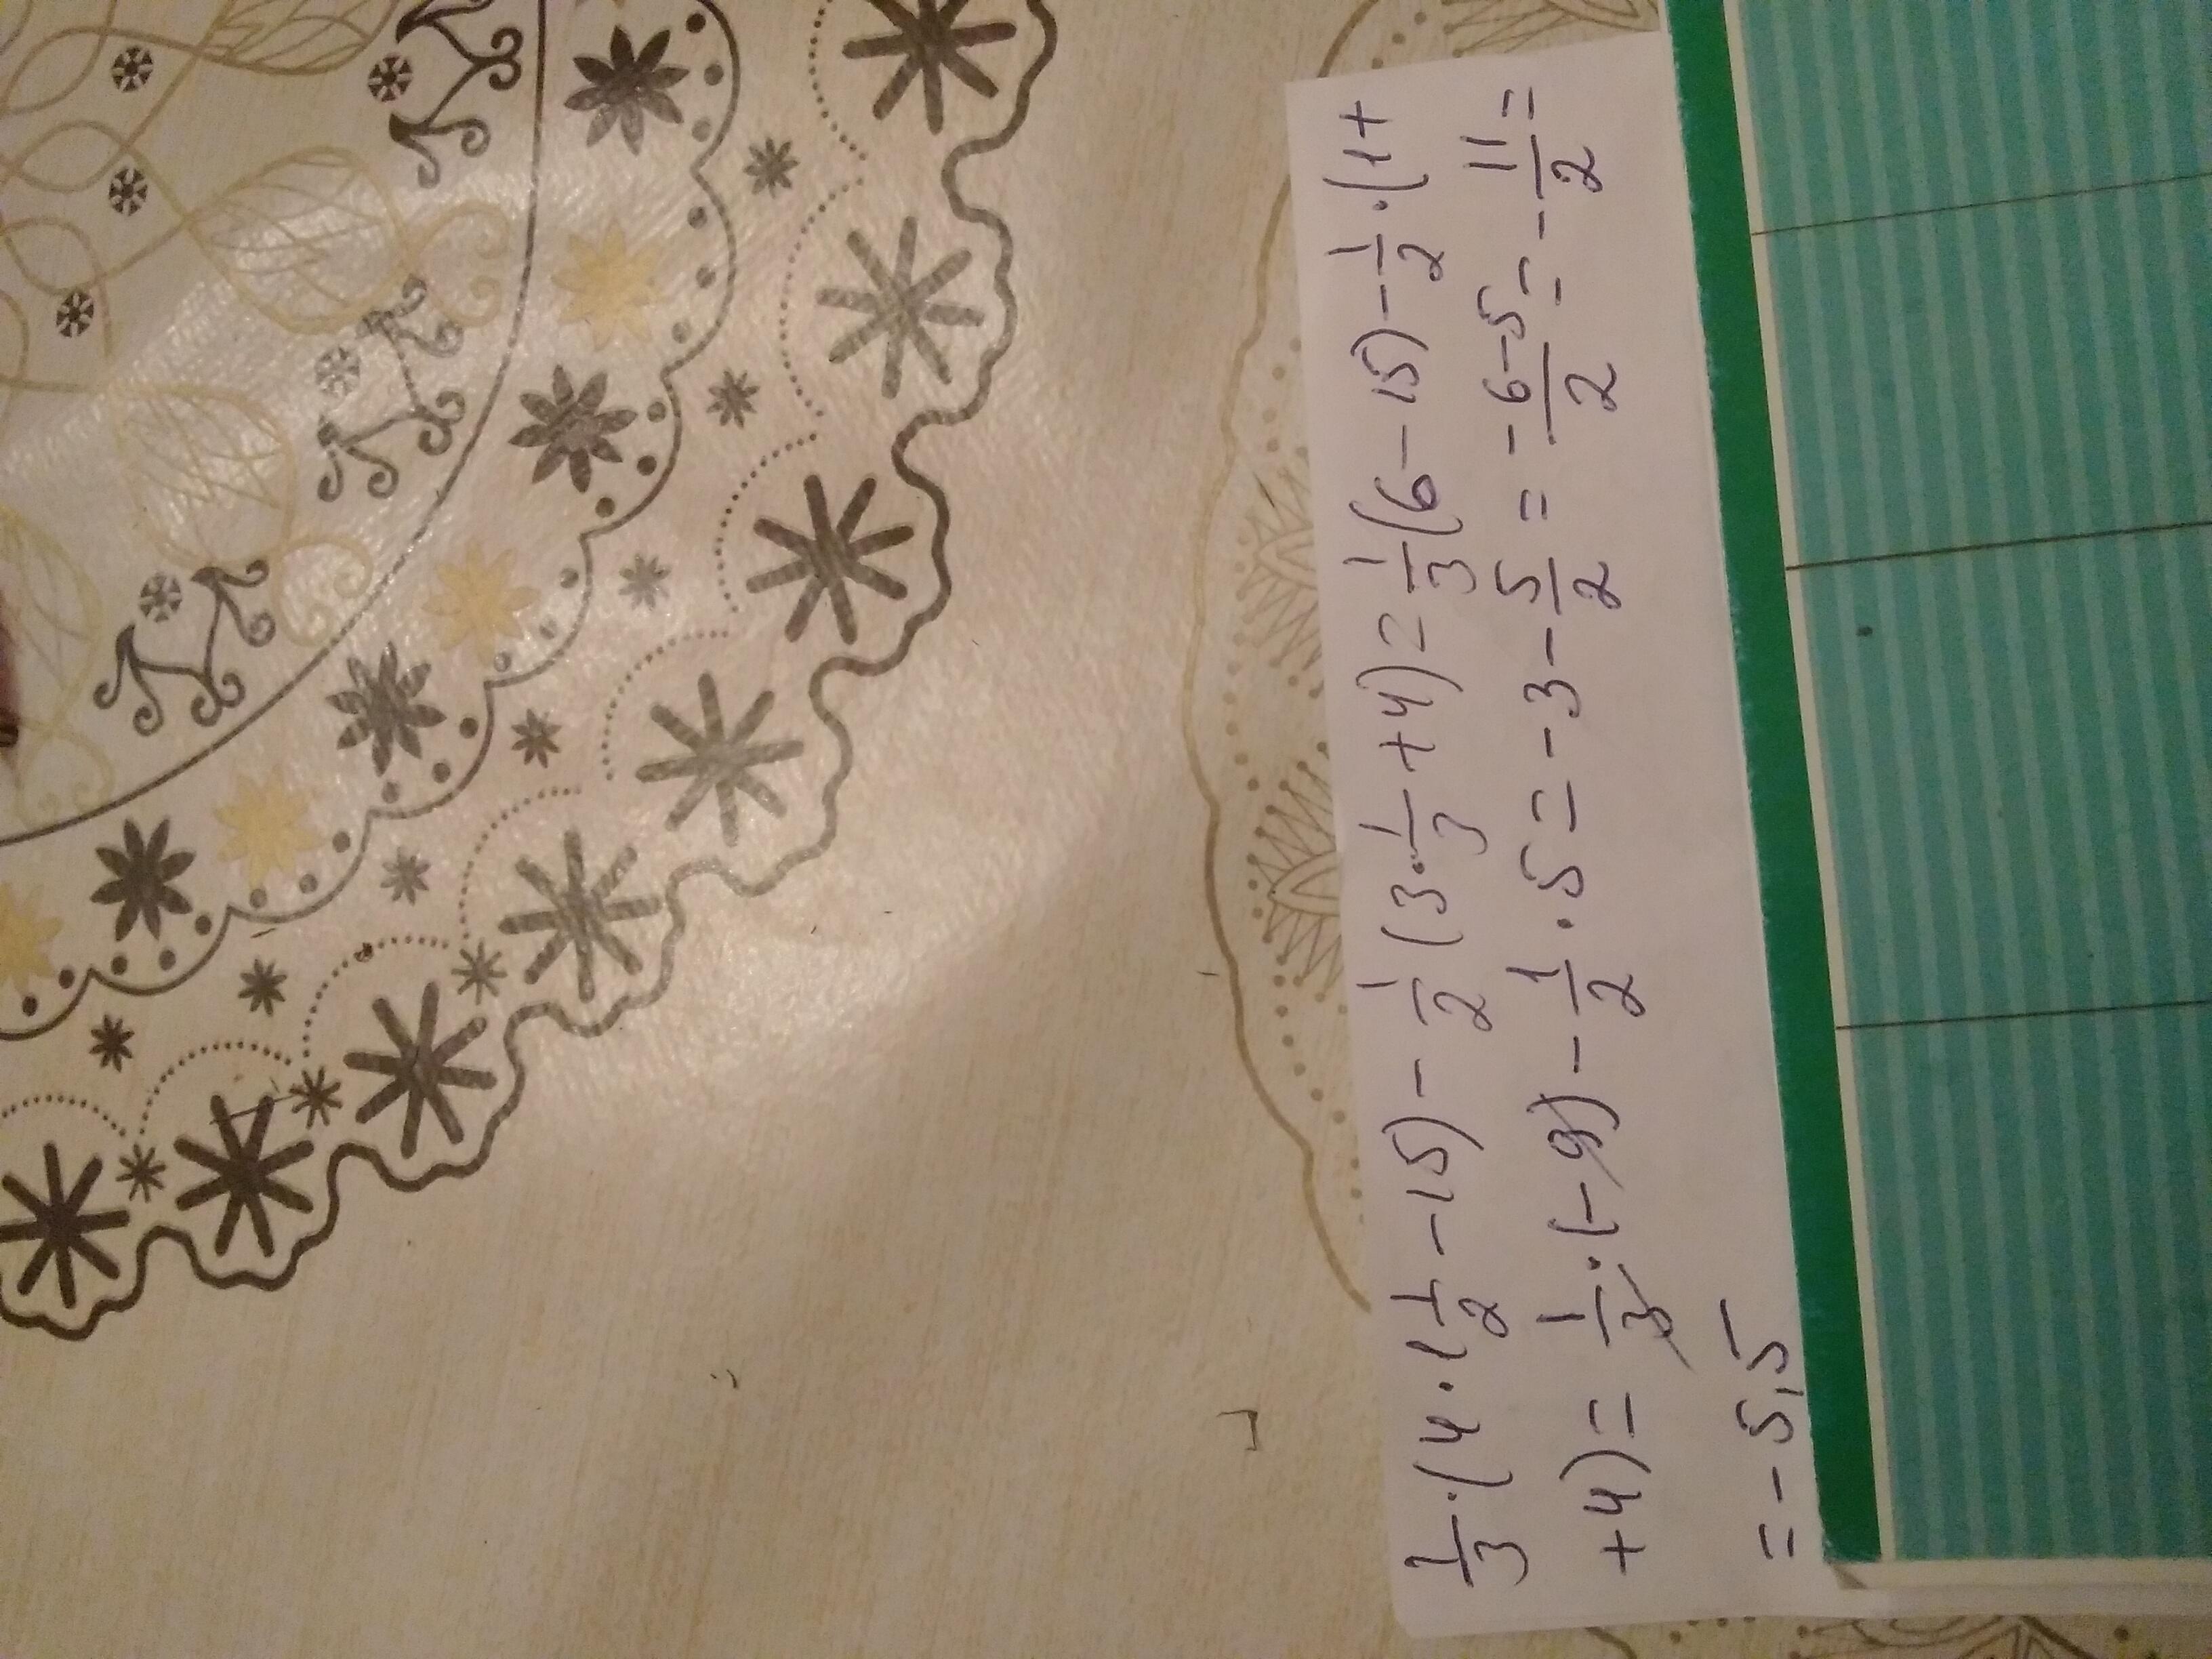 1/3 · (4 · 1 1/2 - 15) - 1/2 (3 · 1/3 + 4) = 1/3 (6 - 15) - 1/2 · (1 +
+ 4) = 1/3 · (-9) - 1/2 · 5 = -3 - 5/2 = -6-5/2 = - 11/2 =
= - 5,5